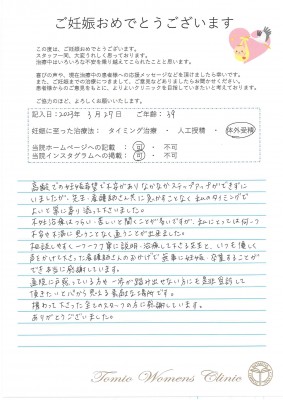 ご妊娠おめでとうございます
この度は、ご妊娠おめでとうございます。
スタッフ一同、大変うれしく思っております。
治療中はいろいろな不安を乗り越えてこられたことと思います。
喜びの声や、現在治療中の患者様への応援メッセージなどを頂けましたら幸いです。
また、現在までの治療につきまして、ご意見などありましたらお聞かせください。
患者様からのご意見をもとに、よりよいクリニックを目指していきたいと考えております。
ご協力のほど、よろしくお願いいたします。
記入日:2023年 3月27日 ご年齢:39
妊娠に至った治療法: タイミング治療 ・ 人工授精 ・ 体外受精
当院ホームページへの記載: 可 ・ 不可
当院インスタグラムへの掲載: 可 ・ 不可
高齢での妊娠希望で不安があり なかなかステップアップができずに
いましたが、先生・看護師さん共に急かすことなく私のタイミングで
よいと常に寄り添って下さいました。
不妊治療はつらい・苦しいと聞くことが多いですが、私にとっては何一つ
不安や痛みに思うことなく通うことが出来ました。
相談しやすく一つ一つ丁寧に説明・治療して下さる先生と、いつも優しく
声をかけて下さった看護師さんのおかげで 無事に妊娠・卒業することが
でき本当に感謝しています。
転院に戸惑っている方や一歩が踏み出せない方にも是非受診して
頂きたいと心から思える素敵な場所です。
携わって下さった全てのスタッフの方に感謝しています。
ありがとうございました。
Tomie Womens Clinic